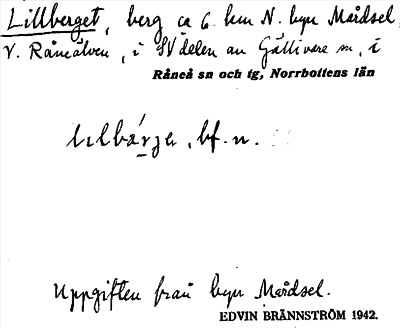 Lillberget, berg ca 6 km N. byn Mårdsel,
V. Råneälven, i SV delen av Gällivare sn, i
Råneå sn och tg, Norrbottens län
bf. n.
Uppgiften från byn Mårdsel.
EDVIN BRÄNNSTRÖM 1942.